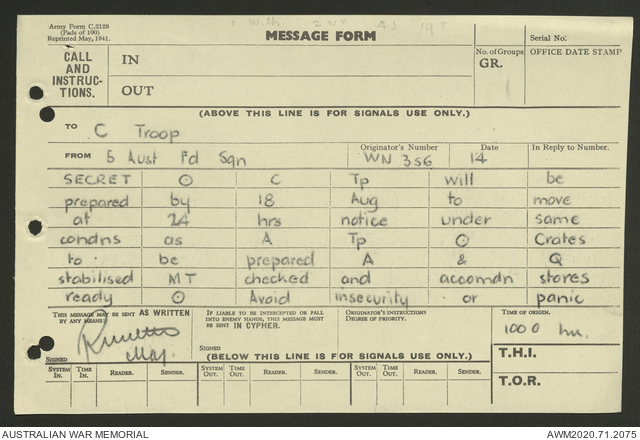 Army Form C.2128
(Pads of 100)
Reprinted May, 1941.
MESSAGE FORM
Serial No:
CALL AND INSTRUC-TIONS.
IN
OUT
No. of Groups
GR.
OFFICE DATE STAMP
(ABOVE THIS LINE IS FOR SIGNALS USE ONLY.)
TO C Troop
FROM 5 Aust Fd Sqn
Originator's Number
WN 356
Date
14
In Reply to Number.
SECRET ⊙ C Tp will be
prepared by 18 Aug to move
at 24 hrs notice under same
condns as A Tp ⊙ Crates
to be prepared A & Q
stabilised MT checked and accomdn stores
ready ⊙ Avoid insecurity or panic
THIS MESSAGE MAY BE SENT AS WRITTEN BY ANY MEANS.
IF LIABLE TO BE INTERCEPTED OR FALL INTO ENEMY HANDS, THIS MESSAGE MUST BE SENT IN CYPHER.
ORIGINATOR'S INSTRUCTIONS DEGREE OF PRIORITY.
TIME OF ORIGIN.
1000 hrs.
Maj.
SIGNED
SIGNED
(BELOW THIS LINE IS FOR SIGNALS USE ONLY.)
T.H.I.
T.O.R.
SYSTEM IN. TIME IN. READER. SENDER. SYSTEM OUT. TIME OUT. READER. SENDER. SYSTEM OUT. TIME OUT. READER. SENDER.
AUSTRALIAN WAR MEMORIAL
AWM2020.71.2075